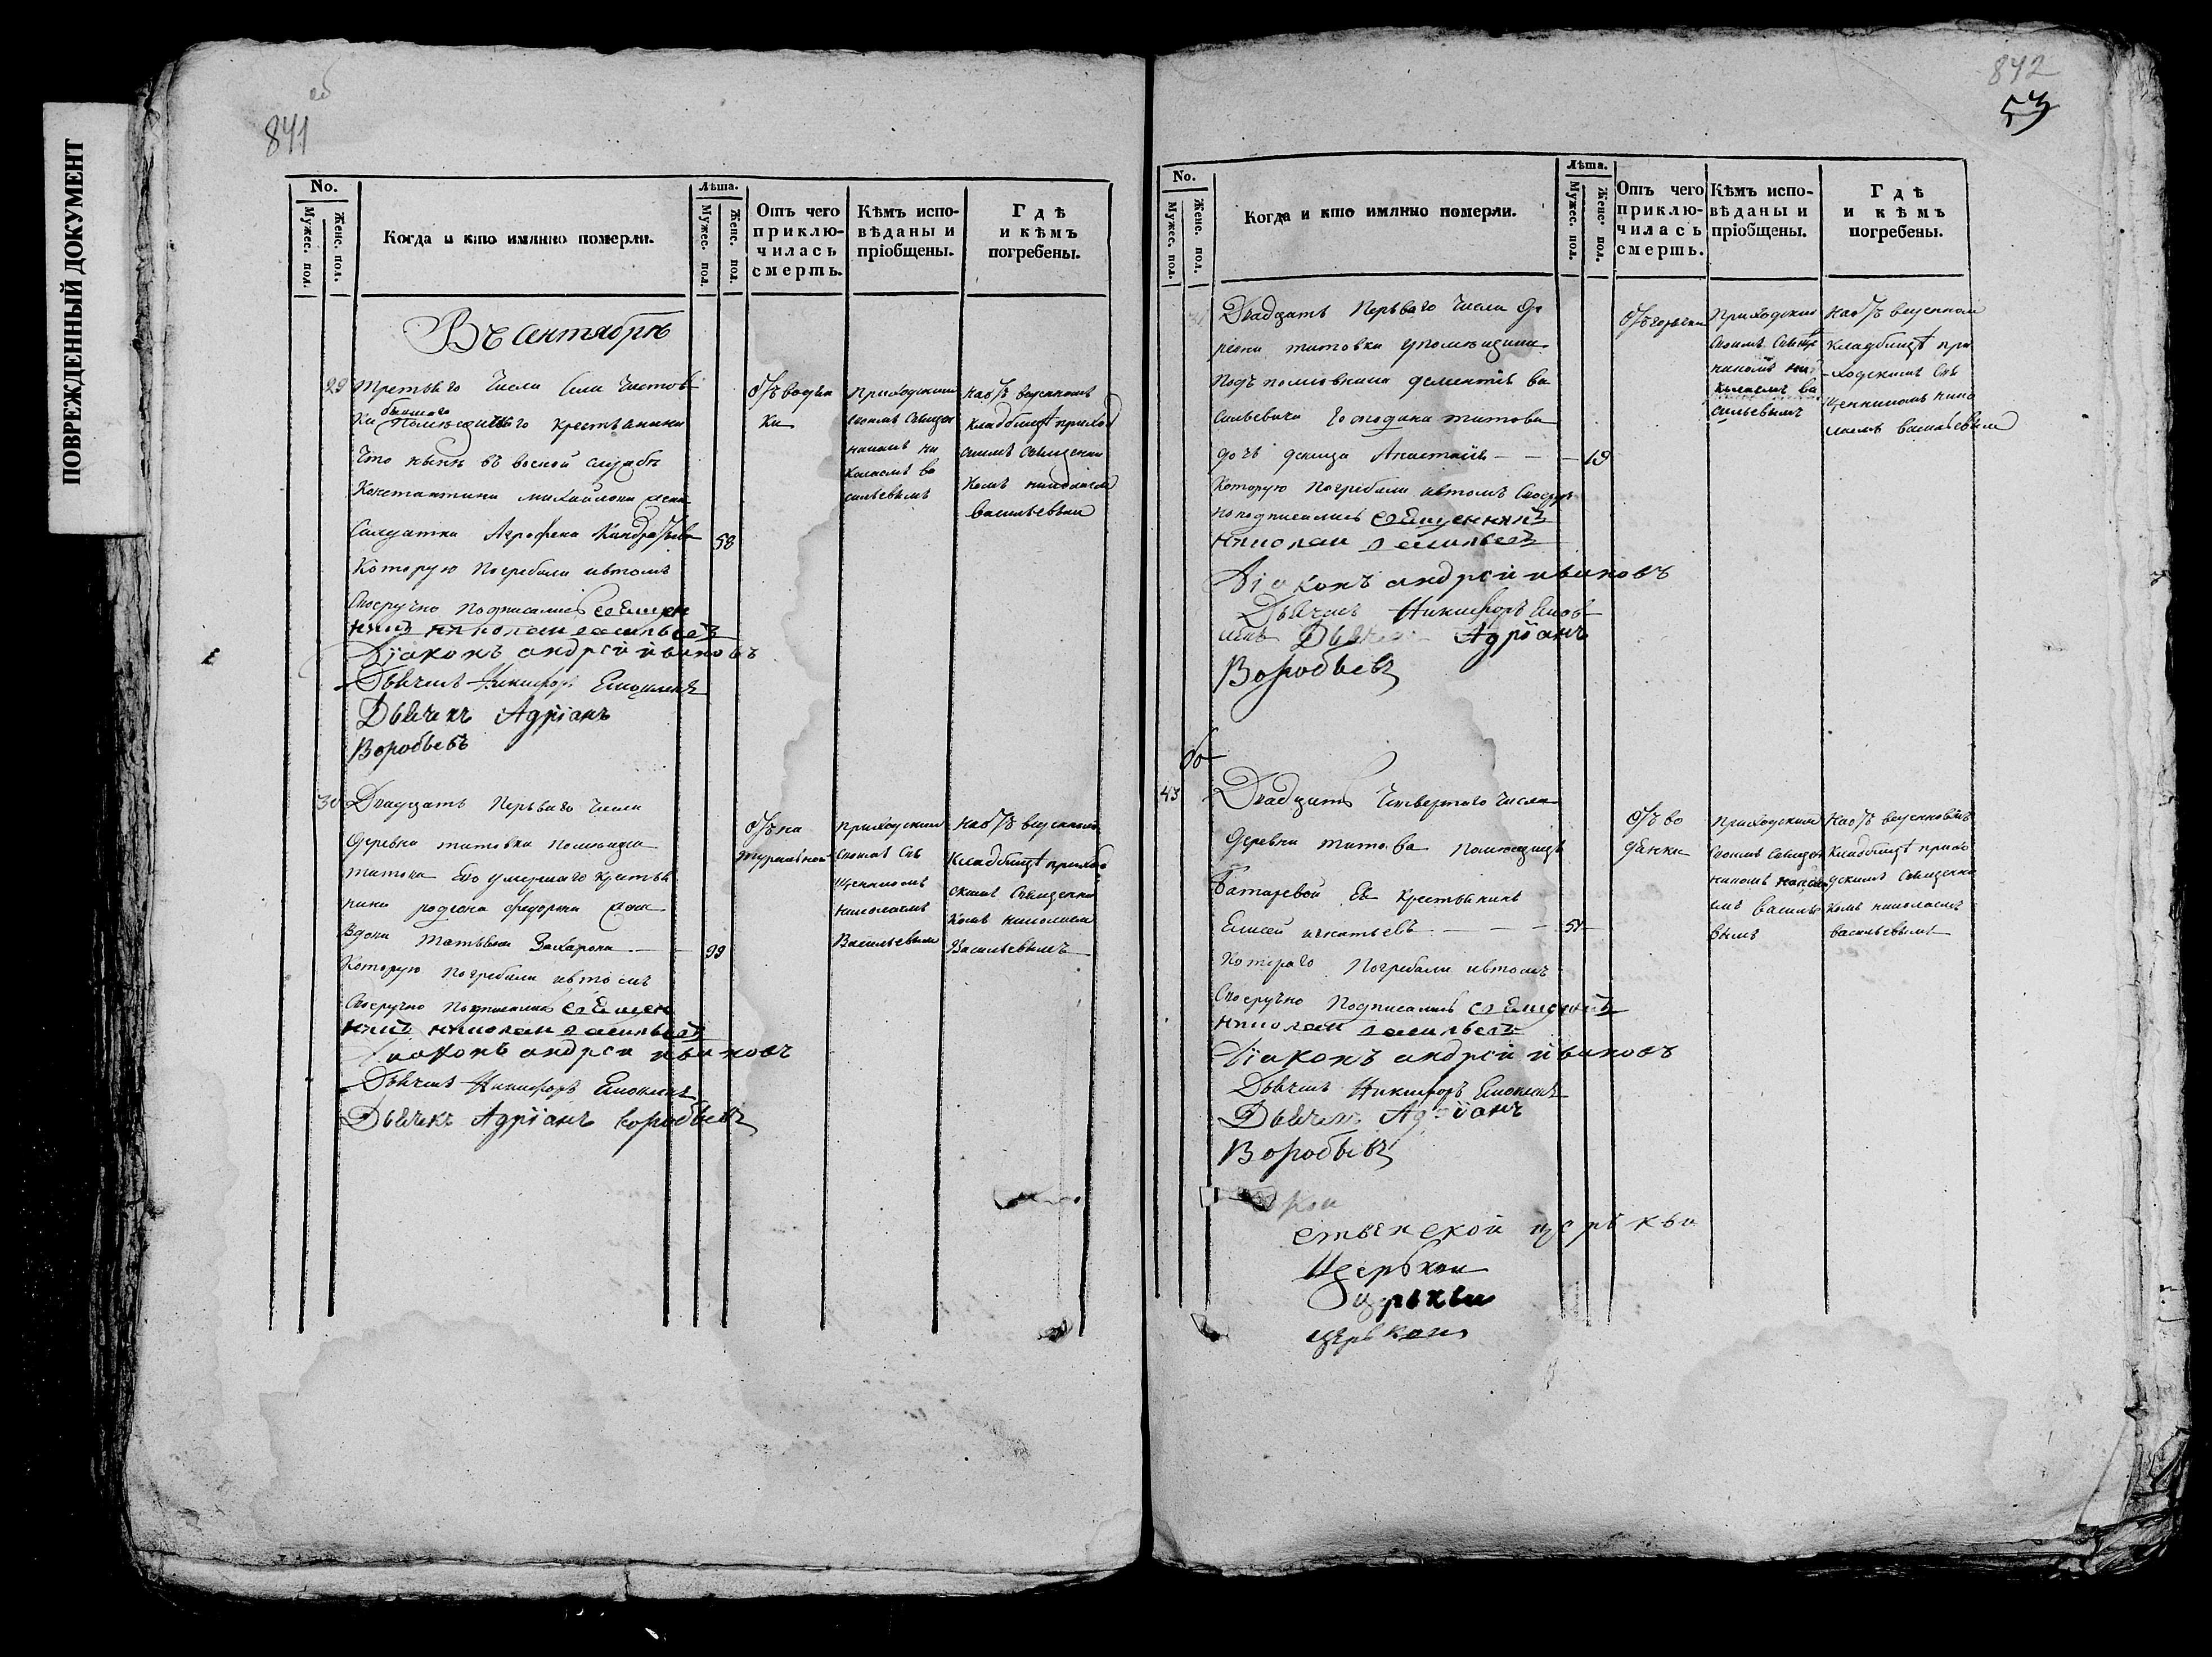 ПОВРЕЖДЕННЫЙ ДОКУМЕНТ
841
No.
Мужес. пол.
Женс. пол.
Когда и кто имянно померли.
Лѣта.
Мужес. пол.
Женс. пол.
Отъ чего приклю-
чилась
смерть.
Кѣмъ испо-
вѣданы и
пріобщены.
Гдѣ
и кѣмъ
погребены.
Въ сентябрѣ
29 Третьяго числа села Чистов
ки бывшаго помѣщичьего крестьянина
что нынѣ въ воской службѣ
Константина михайлова жена
Салдатка Агрофена Кандратьева 58
Которую погребали и втомъ
Своеручно подписались Священ
никъ николаи василье
Діаконъ андрей ивановъ
Дьячекъ Никифоръ
Дьячекъ Адріанъ
Воробьевъ
отъ водян
ки
приходским
своимъ Священ
никомъ ни
колаемъ ва
сильевымъ
на отъ веденномъ
кладбищѣ приход
скимъ Священни
комъ николаем
васильевым
30 Двадцать Перьваго числа
деревни титовки помѣщика
титова его умершаго кресть
нина родиона федорова жена
вдова Татьяна Захарова 99
Которую погребали и втомъ
Своеручно подписались Священ
никъ николаи васильевъ
Діаконъ андреи ивановъ
Дьячекъ Никифоръ
Дьячекъ Адріанъ воробьевъ
отъ на
туральной
приходским
своимъ Свя
щенникомъ
николаемъ
Васильевым
на отъ веденномъ
кладбищѣ приход
скимъ Священни
комъ николаем
Васильевымъ
842
53
No.
Мужес. пол.
Женс. пол.
Когда и кто имянно померли.
Лѣта.
Мужес. пол.
Женс. пол.
Отъ чего
приклю-
чилась
смерть.
Кѣмъ испо-
вѣданы и
пріобщены.
Гдѣ
и кѣмъ
погребены.
31 Двадцать Перьваго числа де
ревни титовки упомѣщика
подъ полковника дементія ва
сильевича господина титова
дочь девица Анастасія 19
Которую погребали и втомъ Своеруч
но подписались священникъ
николаи васильевъ
Діаконъ андрей ивановъ
Дьячекъ Никифоръ
Дьячекъ Адріанъ
Воробьевъ
отъ горячки
приходским
своимъ Свяще
никомъ ни
колаемъ ва
сильевымъ
на отъ веденном
кладбищѣ при
-ходскимъ Свя
щенникомъ нико
лаемъ васильевым
43 Двадцать Четвертаго числа
деревни титовка помещицы
Батаревой Ея крестьянинъ
Елисей игнатьевъ 54
Котораго погребали и втомъ
Своеручно подписались священникъ
николаи васильевъ
Діаконъ андрей ивановъ
Дьячекъ Никифоръ
Дьячекъ Адріанъ
Воробьевъ
отъ во
дянки
приходским
своимъ Священ
никомъ никола
емъ василье
вымъ
на отъ веденномъ
кладбищѣ прихо
дскимъ Священни
комъ николаемъ
васильевымъ
ственской церькви
церькви
церькви